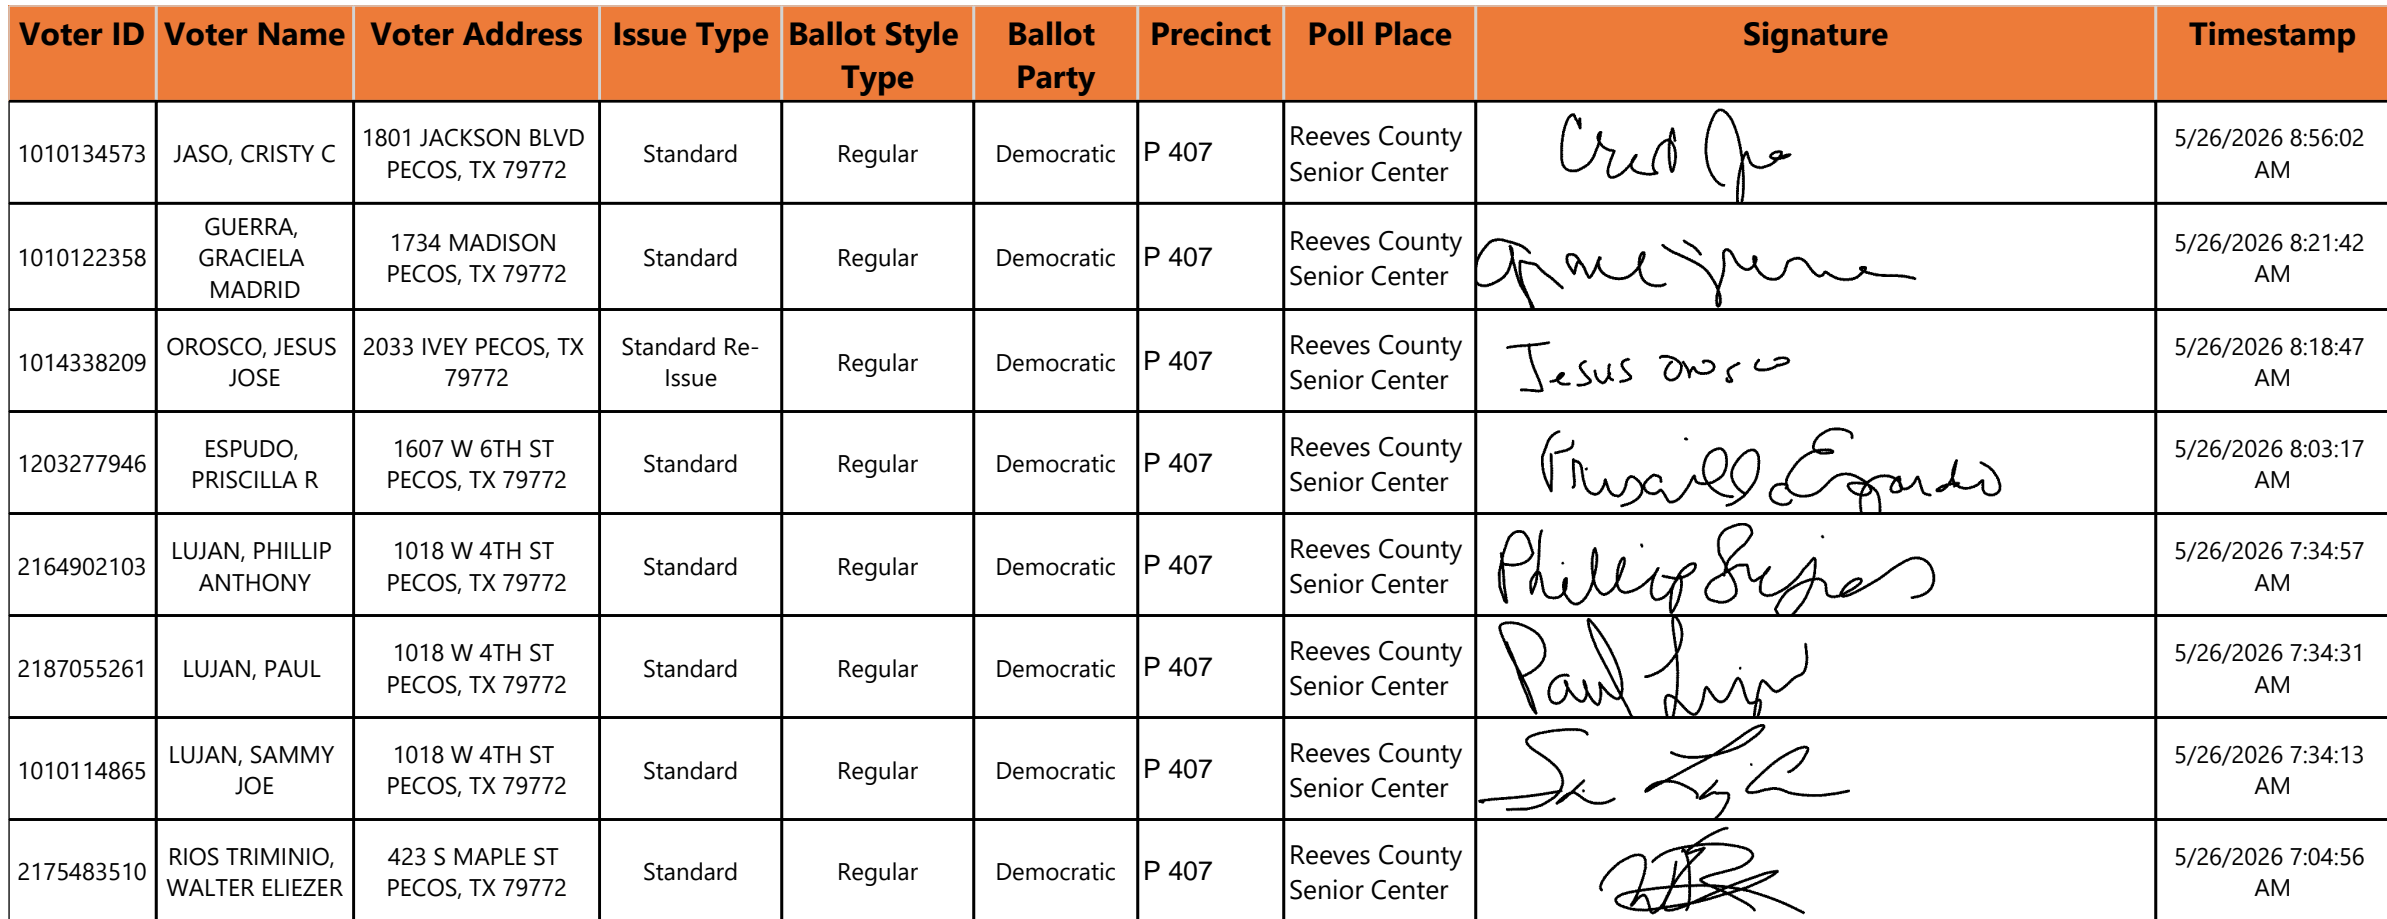 Voter ID Voter Name Voter Address Issue Type Ballot Style Type Ballot Party Precinct Poll Place Signature Timestamp
1010134573 JASO, CRISTY C 1801 JACKSON BLVD PECOS, TX 79772 Standard Regular Democratic P 407 Reeves County Senior Center 5/26/2026 8:56:02 AM
1010122358 GUERRA, GRACIELA MADRID 1734 MADISON PECOS, TX 79772 Standard Regular Democratic P 407 Reeves County Senior Center 5/26/2026 8:21:42 AM
1014338209 OROSCO, JESUS JOSE 2033 IVEY PECOS, TX 79772 Standard Re-Issue Regular Democratic P 407 Reeves County Senior Center Jesus orosco 5/26/2026 8:18:47 AM
1203277946 ESPUDO, PRISCILLA R 1607 W 6TH ST PECOS, TX 79772 Standard Regular Democratic P 407 Reeves County Senior Center 5/26/2026 8:03:17 AM
2164902103 LUJAN, PHILLIP ANTHONY 1018 W 4TH ST PECOS, TX 79772 Standard Regular Democratic P 407 Reeves County Senior Center Phillip Lujan 5/26/2026 7:34:57 AM
2187055261 LUJAN, PAUL 1018 W 4TH ST PECOS, TX 79772 Standard Regular Democratic P 407 Reeves County Senior Center Paul Lujan 5/26/2026 7:34:31 AM
1010114865 LUJAN, SAMMY JOE 1018 W 4TH ST PECOS, TX 79772 Standard Regular Democratic P 407 Reeves County Senior Center 5/26/2026 7:34:13 AM
2175483510 RIOS TRIMINIO, WALTER ELIEZER 423 S MAPLE ST PECOS, TX 79772 Standard Regular Democratic P 407 Reeves County Senior Center 5/26/2026 7:04:56 AM